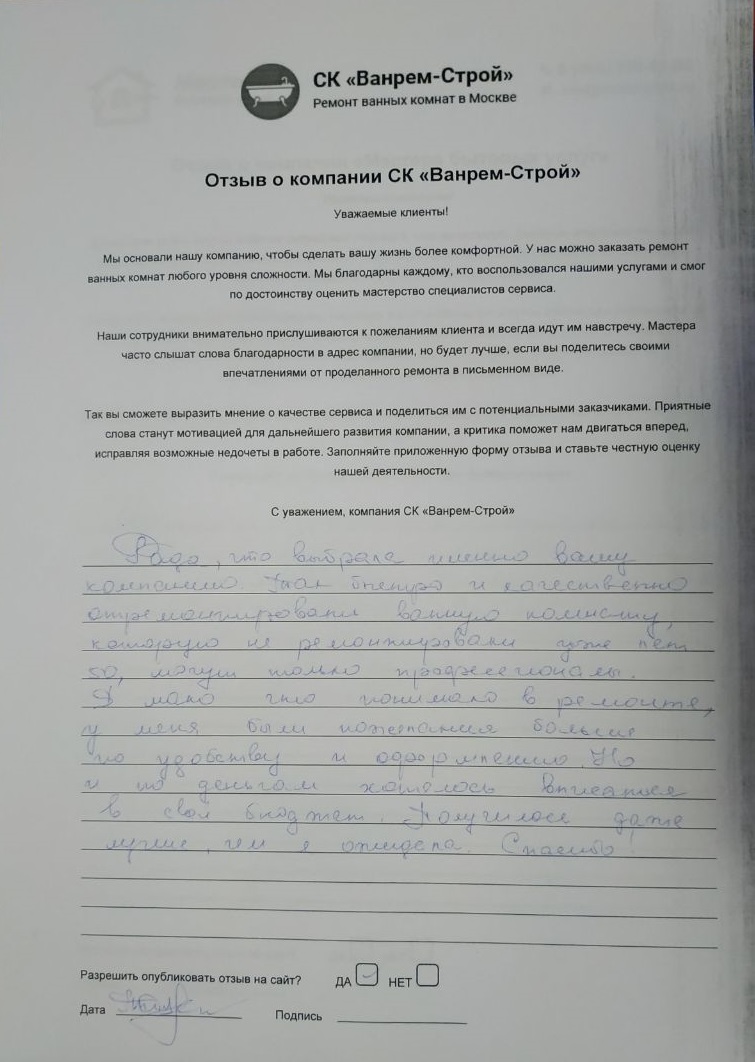 СК «Ванрем-Строй»
Ремонт ванных комнат в Москве
Отзыв о компании СК «Ванрем-Строй»
Уважаемые клиенты!
Мы основали нашу компанию, чтобы сделать вашу жизнь более комфортной. У нас можно заказать ремонт
ванных комнат любого уровня сложности. Мы благодарны каждому, кто воспользовался нашими услугами и смог
по достоинству оценить мастерство специалистов сервиса.
Наши сотрудники внимательно прислушиваются к пожеланиям клиента и всегда идут им навстречу. Мастера
часто слышат слова благодарности в адрес компании, но будет лучше, если вы поделитесь своими
впечатлениями от проделанного ремонта в письменном виде.
Так вы сможете выразить мнение о качестве сервиса и поделиться им с потенциальными заказчиками. Приятные
слова станут мотивацией для дальнейшего развития компании, а критика поможет нам двигаться вперед,
исправляя возможные недочеты в работе. Заполняйте приложенную форму отзыва и ставьте честную оценку
нашей деятельности.
С уважением, компания СК «Ванрем-Строй»
Рада, что выбрала именно вашу
компанию. Так быстро и качественно
отремонтировали ванную комнату,
которую не ремонтировали уже лет
50, могут только профессионалы.
Я мало что понимаю в ремонте,
у меня были пожелания больше
по удобству и оформлению. Но
и по деньгам хотелось вписаться
в свой бюджет. Получилось даже
лучше, чем я ожидала. Спасибо!
Разрешить опубликовать отзыв на сайт? ДА НЕТ
Дата Подпись